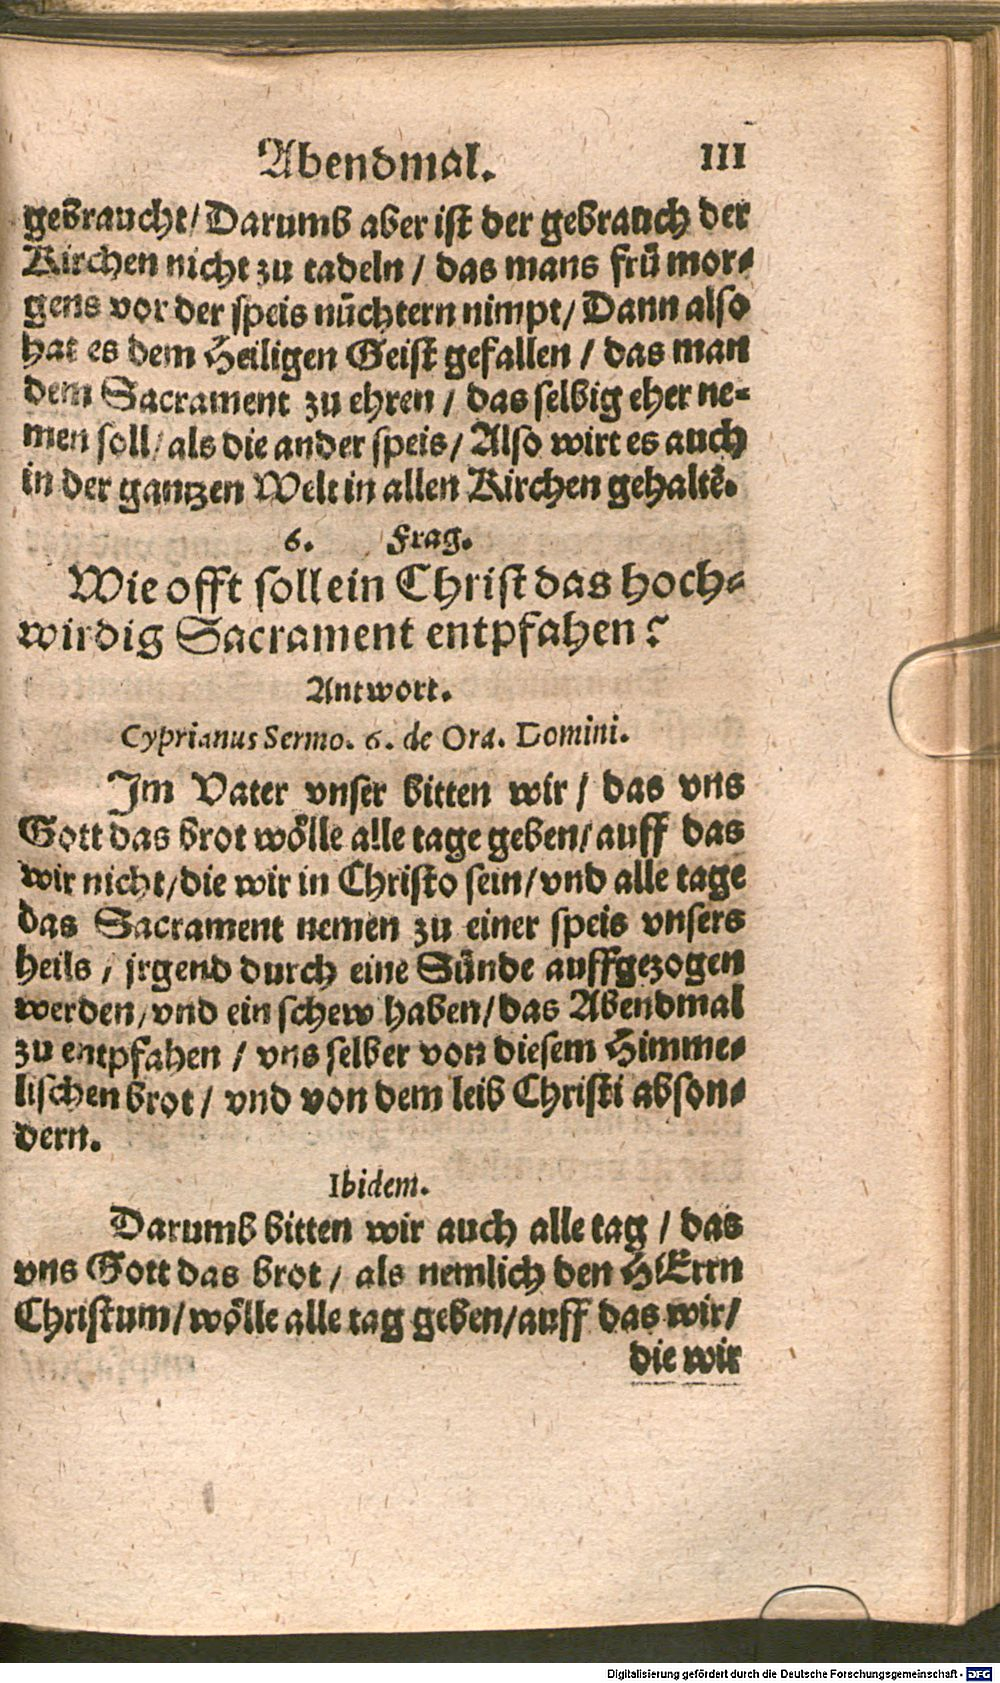 Abendmal. 111
gebraucht/ Darumb aber ist der gebrauch der
Kirchen nicht zu tadeln / das mans frü mor-
gens vor der speis nüchtern nimpt/ Dann also
hat es dem Heiligen Geist gefallen / das man
dem Sacrament zu ehren / das selbig eher ne-
men soll/ als die ander speis/ Also wirt es auch
in der gantzen Welt in allen Kirchen gehaltē.
6. Frag.
Wie offt soll ein Christ das hoch-
wirdig Sacrament entpfahen?
Antwort.
Cyprianus Sermo. 6. de Ora. Domini.
Im Vater vnser bitten wir / das vns
Gott das brot wölle alle tage geben/ auff das
wir nicht/ die wir in Christo sein/ vnd alle tage
das Sacrament nemen zu einer speis vnsers
heils / jrgend durch eine Sünde auffgezogen
werden/ vnd ein schew haben/ das Abendmal
zu entpfahen / vns selber von diesem Himme-
lischen brot / vnd von dem leib Christi abson-
dern.
Ibidem.
Darumb bitten wir auch alle tag / das
vns Gott das brot / als nemlich den HErrn
Christum/ wölle alle tag geben/ auff das wir/
die wir
Digitalisierung gefördert durch die Deutsche Forschungsgemeinschaft - DFG